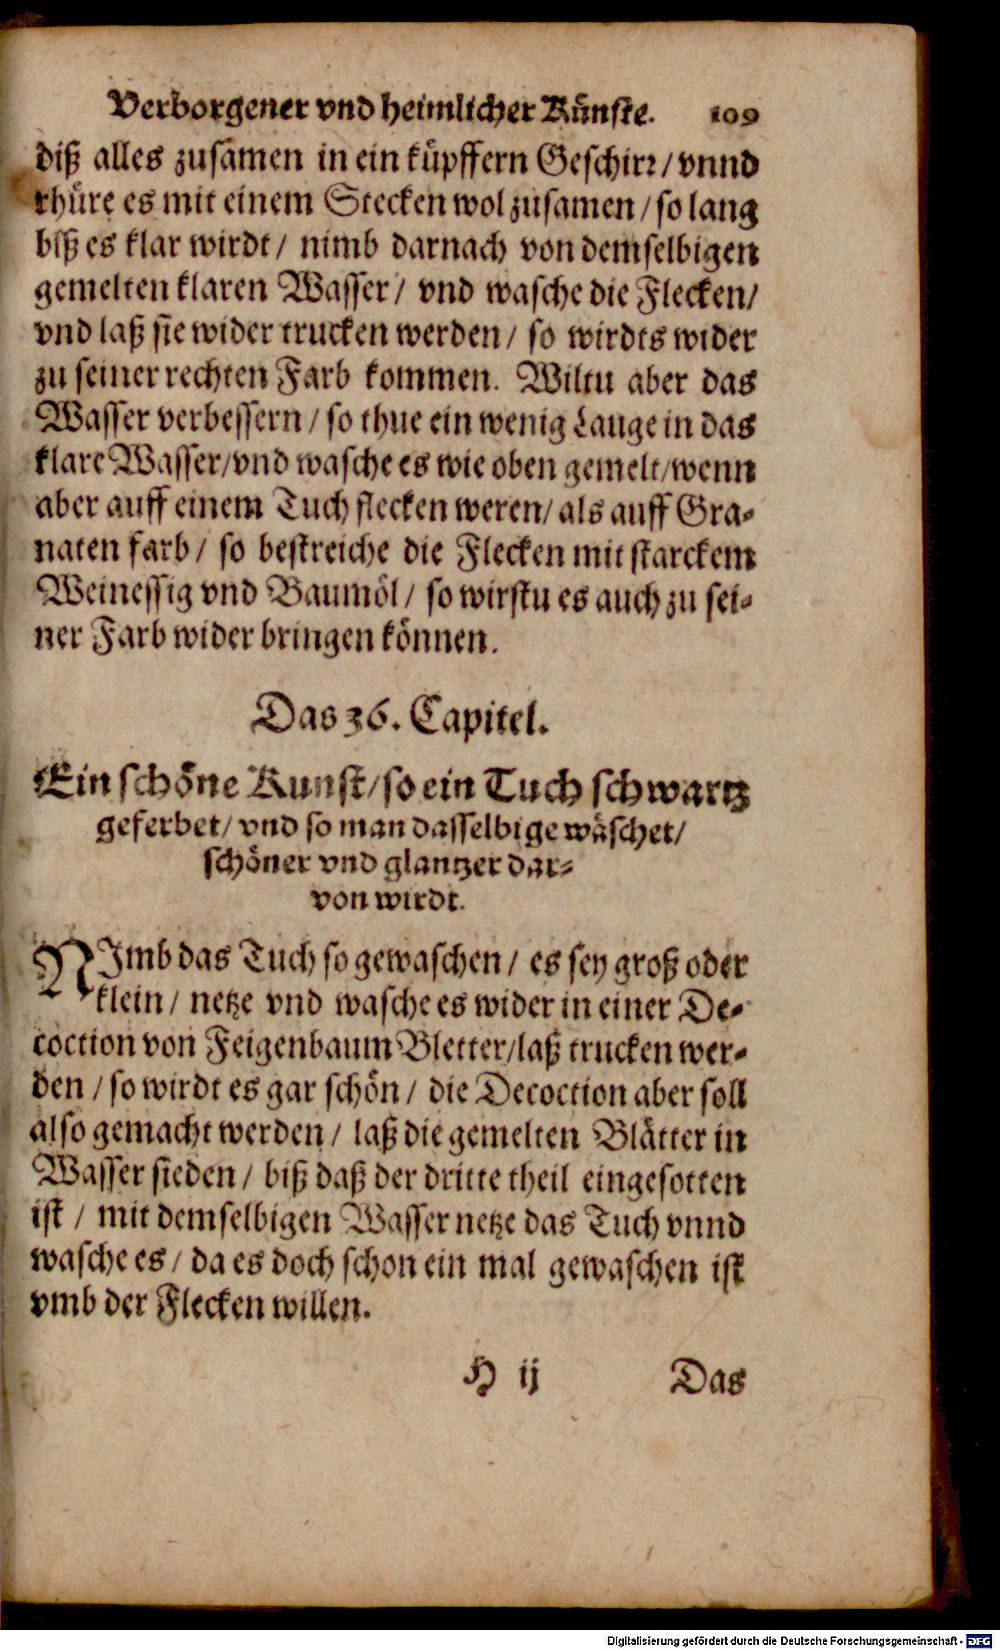 Verborgener vnd heimlicher Künste. 109
diß alles zusamen in ein küpffern Geschirr/ vnnd
rhüre es mit einem Stecken wol zusamen/ so lang
biß es klar wirdt/ nimb darnach von demselbigen
gemelten klaren Wasser/ vnd wasche die Flecken/
vnd laß sie wider trucken werden/ so wirdts wider
zu seiner rechten Farb kommen. Wiltu aber das
Wasser verbessern/ so thue ein wenig Lauge in das
klare Wasser/ vnd wasche es wie oben gemelt/ wenn
aber auff einem Tuch flecken weren/ als auff Gra-
naten farb/ so bestreiche die Flecken mit starckem
Weinessig vnd Baumöl/ so wirstu es auch zu sei-
ner Farb wider bringen können.
Das 36. Capitel.
Ein schöne Kunst/ so ein Tuch schwartz
geferbet/ vnd so man dasselbige wäschet/
schöner vnd glantzer dar-
von wirdt.
NImb das Tuch so gewaschen/ es sey groß oder
klein/ netze vnd wasche es wider in einer De-
coction von Feigenbaum Bletter/ laß trucken wer-
den/ so wirdt es gar schön/ die Decoction aber soll
also gemacht werden/ laß die gemelten Blätter in
Wasser sieden/ biß daß der dritte theil eingesotten
ist/ mit demselbigen Wasser netze das Tuch vnnd
wasche es/ da es doch schon ein mal gewaschen ist
vmb der Flecken willen.
H ij Das
Digitalisierung gefördert durch die Deutsche Forschungsgemeinschaft - DFG